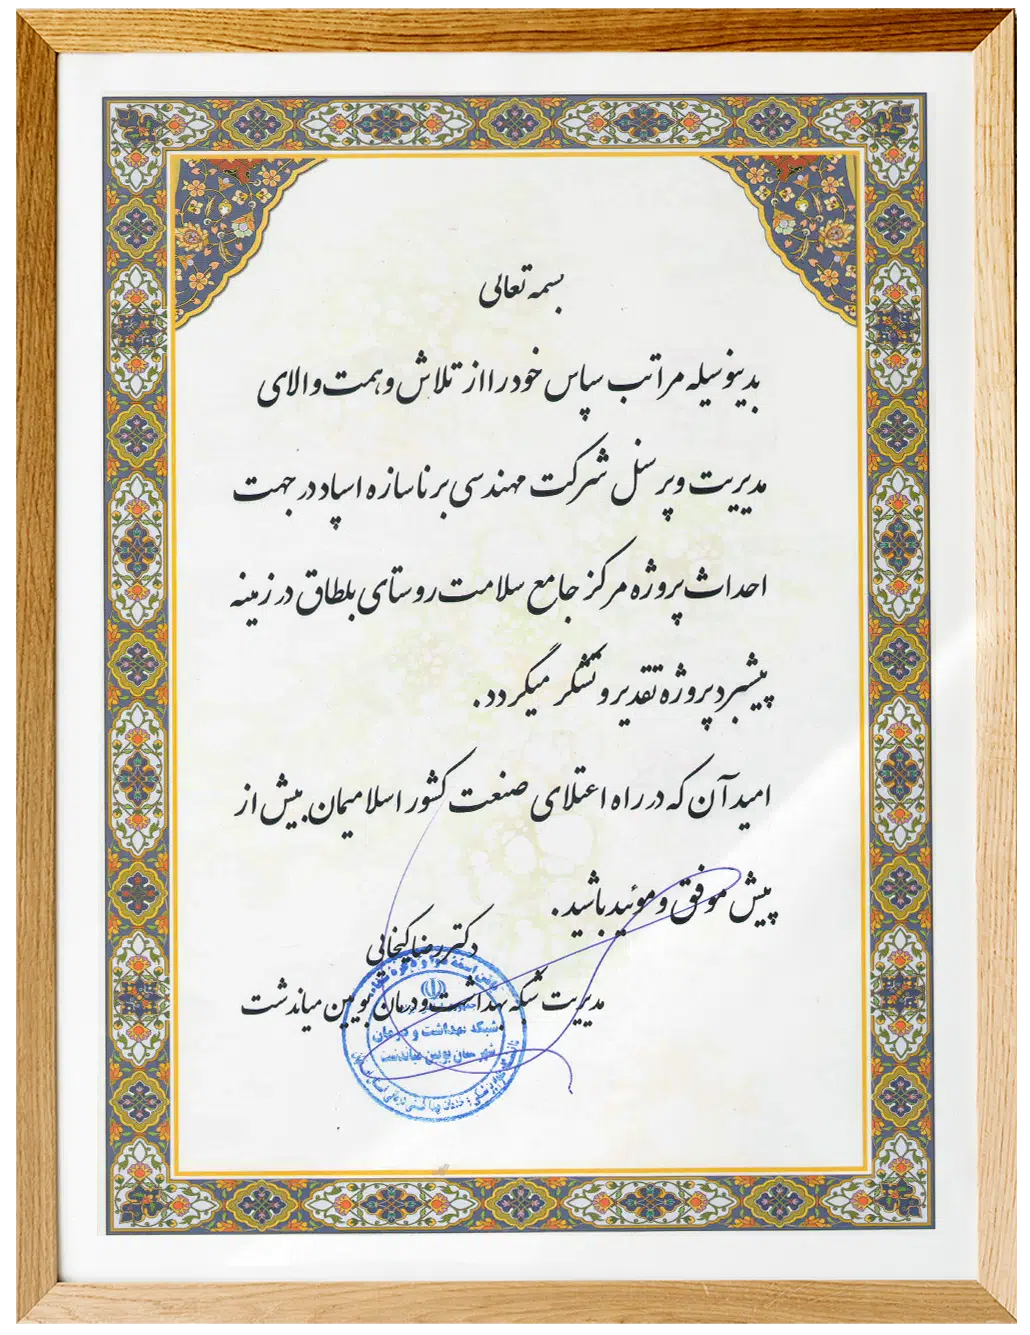 بسمه تعالی
بدینوسیله مراتب سپاس خود را از تلاش و همت والای
مدیریت و پرسنل شرکت مهندسی برنا سازه اسپاد در جهت
احداث پروژه مرکز جامع سلامت روستای بلطاق در زمینه
پیشبرد پروژه تقدیر و تشکر میگردد.
امید آن که در راه اعتلای صنعت کشور اسلامیمان بیش از
پیش موفق و موئید باشید.
دکتر رضا کیخائی
مدیریت شبکه بهداشت و درمان بویین میاندشت
شبکه بهداشت و درمان
شهرستان بویین میاندشت